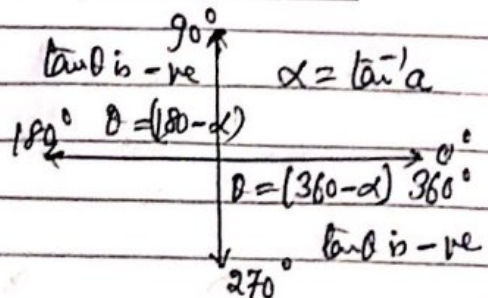 90°
tanθ is -ve α = tan⁻¹a
180° θ = (180-α) 0°
θ = (360-α) 360°
tanθ is -ve
270°